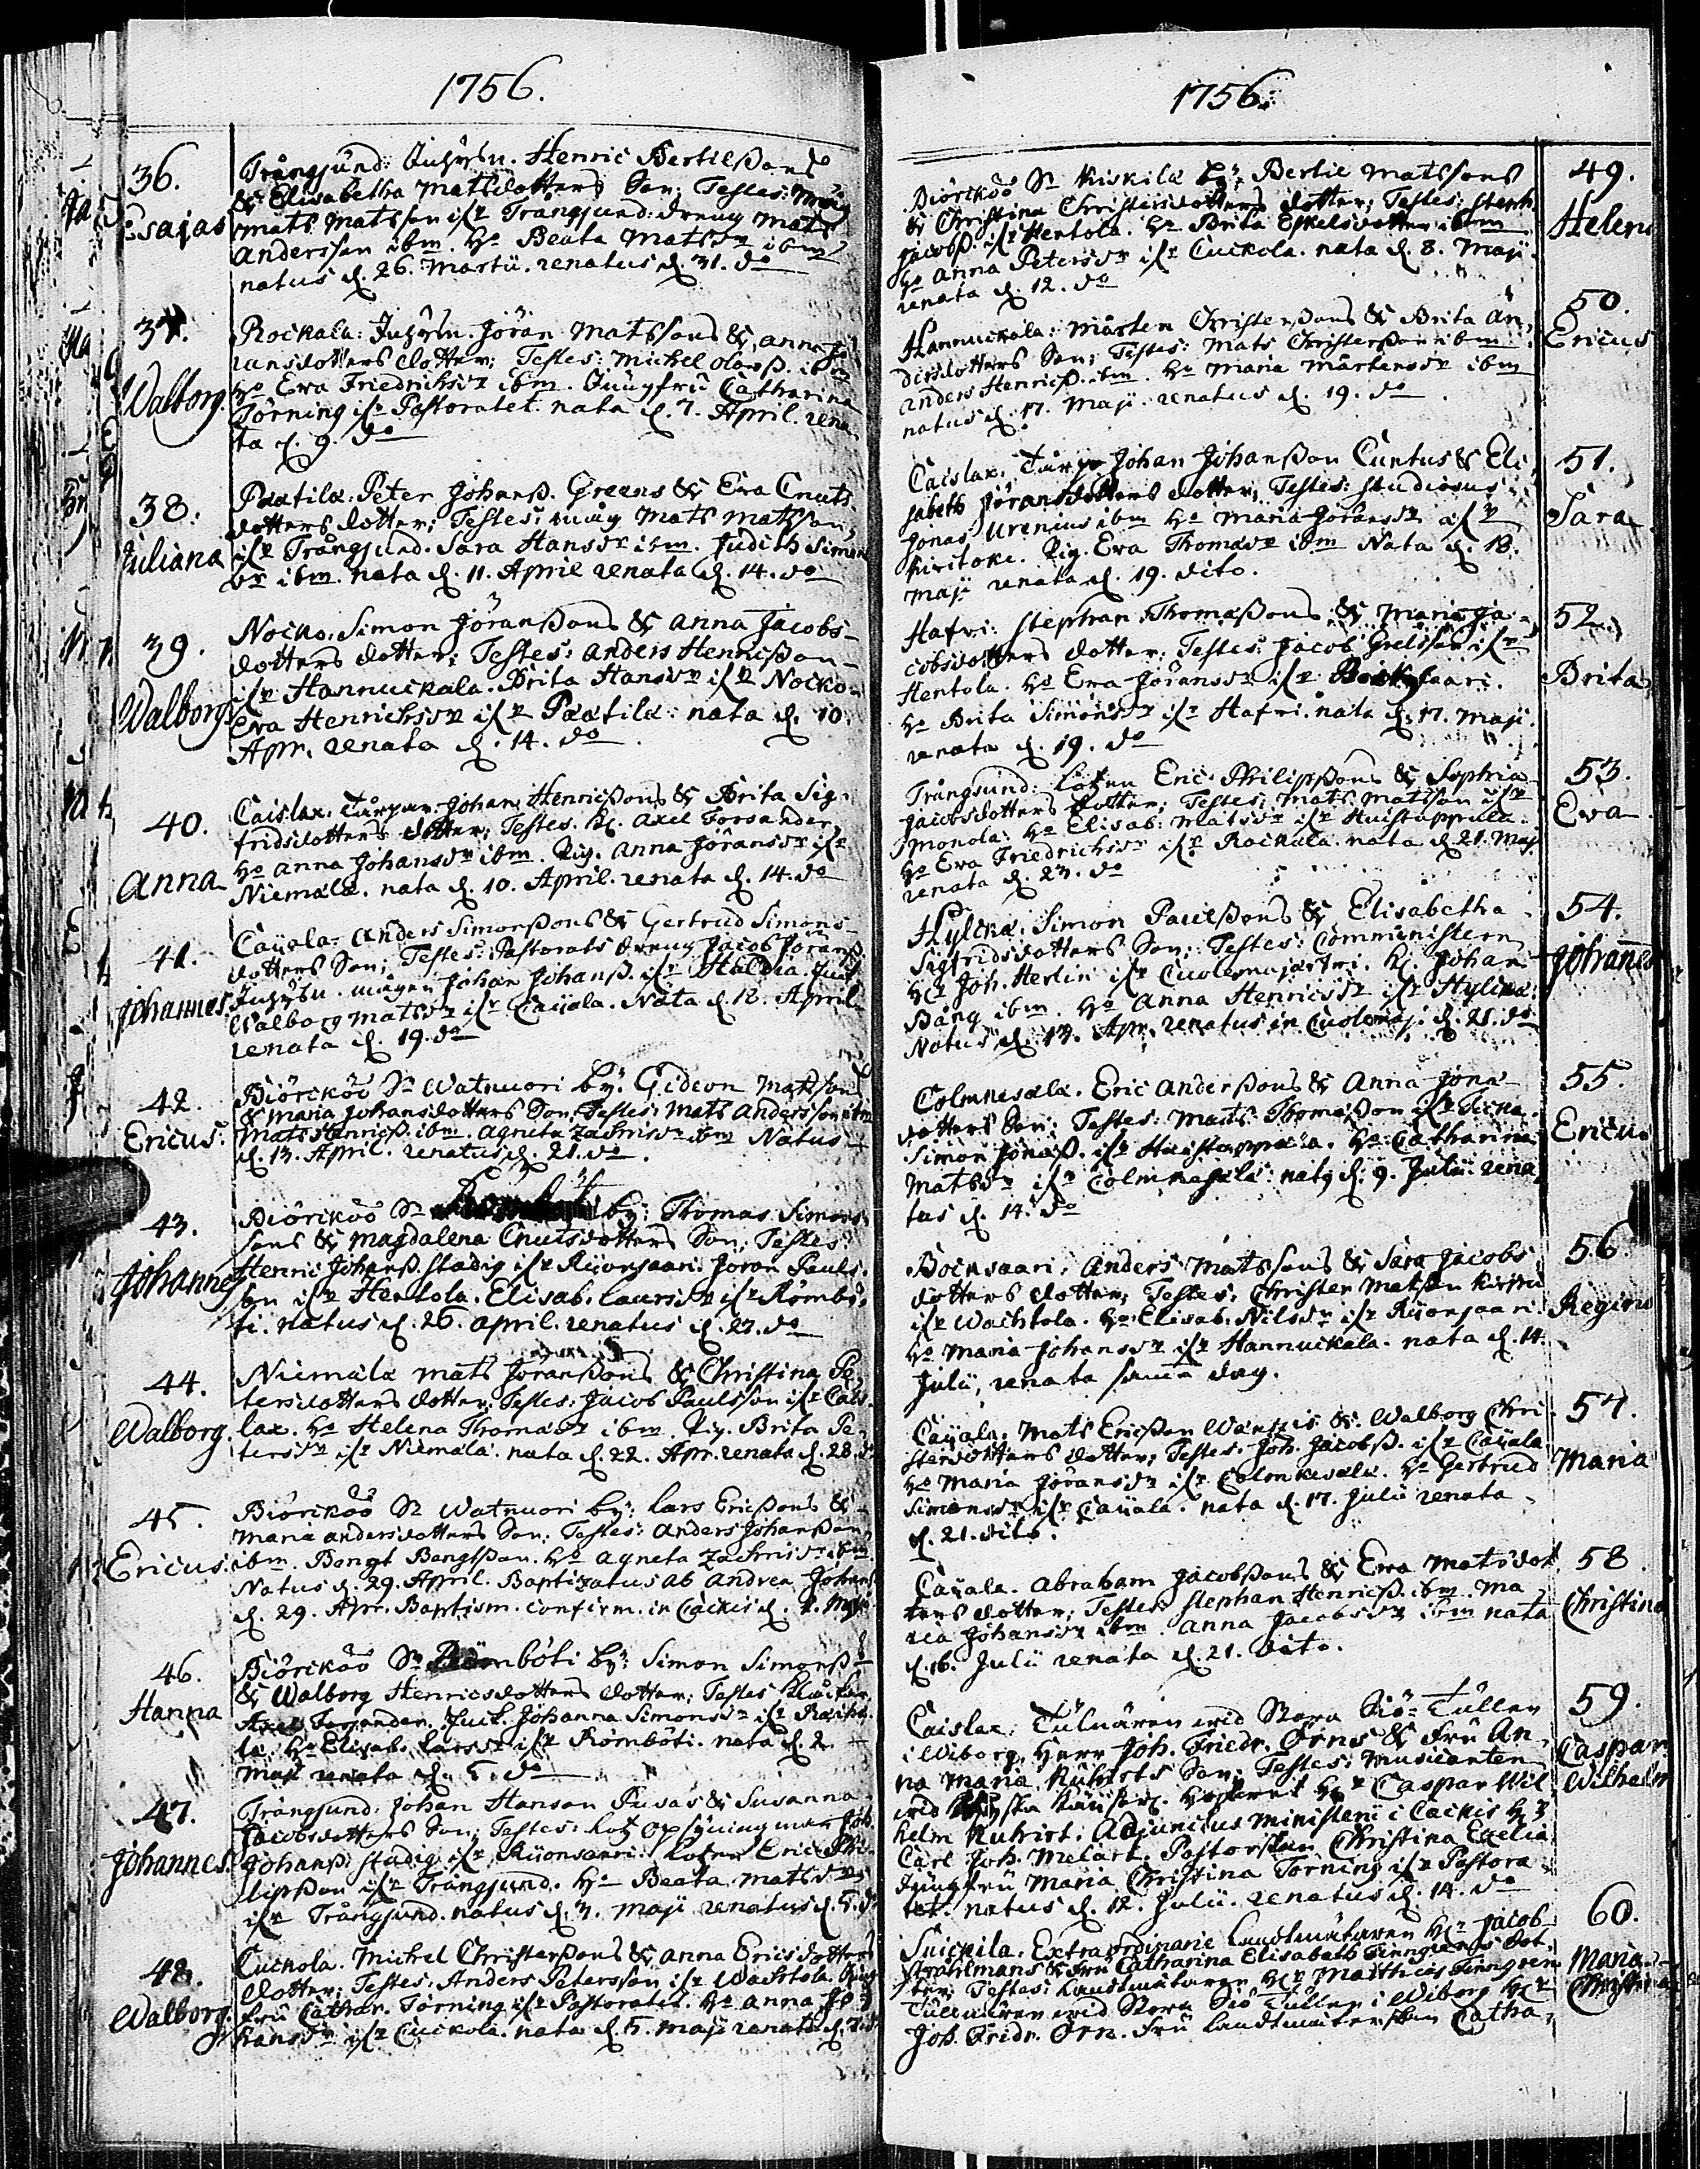 1756.
36.
Esajas
Trångsund: Inhysn. Henric Bertilßons
& Elisabetha Matsdotters Son; Testes:
Mats Matsson ifr Trångsund: dreng Mats
Andersson ibm. Hu Beata Matsdr ibm
natus d. 26. Martii. renatus d. 31. do
37.
Walborg.
Rockala: Inhysn. Jöran Matssons & Anna Jö
ransdotters dotter; Testes: Michel Olofß. ibm
Hu Eva Friedrichsdr ibm. Jungfru Catharina
Törning ifr Pastoratet. nata d. 7. April. rena
ta d. 9. do
38.
Juliana
Paatila. Peter Johanß. Greens & Eva Cnuts
dotters dotter; Testes: Mats Matsson
ifr Trångsund. Sara Hansdr ibm. Judith Simons
dr ibm. nata d. 11. April renata d. 14. do
39.
Walborg
Nocko. Simon Jöranßons & Anna Jacobs-
dotters dotter; Testes: Anders Henricßon
ifr Hannuckala. Brita Hansdr ifr Nocko
Eva Henrichsdr ifr Paatila: nata d. 10.
Apr. renata d. 14. do
40.
Anna
Caislax. Johan Henricßons & Brita Sig-
fridsdotters dotter; Testes. Kl. Axel Forsander
Hu Anna Johansdr ibm. Pig. Anna Jöransdr ifr
Niemälä. nata d. 10. April. renata d. 14. do
41.
Johannes.
Caijala. Anders Simonßons & Gertrud Simons-
dotters Son; Testes: Pastorats dreng Jacob Jöranß
Inhysn. Johan Johanß. ifr
Walborg Matsdr ifr Caijala. Nata d. 18. April
renata d. 19. do
42.
Ericus.
Biörcköö Sn Watnuori by: Gideon Matssons
& Maria Johansdotters Son; Testes: Mats Andersson ibm
Mats Henricß. ibm. Agneta Zachrisdr ibm Natus
d. 13. April. renatus d. 21. do.
43.
Johannes
Biörcköö Sn by: Thomas Simons
sons & Magdalena Cnutsdotters Son; Testes:
Henric Johanß. Stadig ifr Rijonsaari. Jöran Pauls-
son ifr Hertola. Elisab. Larsdr ifr Römbö-
ti. natus d. 26. April. renatus d. 27. do
44.
Walborg.
Niemälä Mats Jöranßons & Christina Pe
tersdotters dotter; Testes: Jacob Paulsson ifr Cais
lax. Hu Helena Thomædr ibm. Pig. Brita Pe
tersdr ifr Niemälä. nata d. 22. Apr. renata d. 28. do
45.
Ericus.
Biörcköö Sn Watnuori by: Lars Ericßons &
Maria Andersdotters Son; Testes: Anders Johanßon
ibm. Bengt Bengtßon. Hu Agneta Zachrisdr ibm
Natus d. 29. April. Baptizatus ab Andrea Johans
d. 29. Apr. Baptism. confirm. in Cackis d. 2. Maji
46.
Hanna
Biörcköö Sn Römböti by: Simon Simonß
& Walborg Henricsdotters dotter; Testes
Axel Forsander. Juck. Johanna Simonsdr ifr
Hu Elisab. Larsdr ifr Römböti. nata d. 2.
Maji renata d. 5. do
47.
Johannes.
Trångsund: Johan Hanson Pusas & Susanna
Jacobsdotters Son; Testes: Joh.
Johanß. Stadig ifr Rijonsaari. Lotsen Eric Phi-
lipßon ifr Trångsund. Hu Beata Matsdr
ifr Trångsund. natus d. 3. Maji renatus d. 5. do
48.
Walborg.
Cuckola. Michel Christerßons & Anna Ericsdotters
dotter; Testes: Anders Petersson ifr Wachtola. Jung
fru Cathar. Törning ifr Pastoratet. Hu Anna Jo
hansdr ifr Cuckola. nata d. 5. Maji renata d. 7. do
1756.
49.
Helena
Biörcköö Sn Kiskila by: Bertil Matssons
& Christina Christersdotters dotter; Testes: Steph.
Jacobß. ifr Hertola. Hu Brita Eskelsdotter ibm
Hu Anna Petersdr ifr Cuckola. nata d. 8. Maji.
renata d. 12. do
50.
Ericus
Hannuckala: Mårten Christerßons & Brita An
dersdotters Son; Testes: Mats Christerßon ibm
Anders Henricß. ibm. Hu Maria Mårtensdr ibm
natus d. 17. Maji. renatus d. 19. do.
51.
Sara
Caislax. Johan Johanßon Cuntus & Eli
sabeth Jöransdotters dotter; Testes: Studiosus
Jonas Urenius ibm Hu Maria Jöransdr ifr
Kiritoke. Pig. Eva Thomædr ibm Nata d. 18.
Maji renata d. 19. dito.
52.
Brita
Hafri: Stephan Thomaßons & Maria Ja-
cobsdotters dotter; Testes: Jacob ifr
Hertola. Hu Eva Jöransdr ifr
Hu Brita Simonsdr ifr Hafri. nata d. 17. Maji
renata d. 19. do
53.
Eva
Trångsund: Lotsen Eric Philipßons & Sophia
Jacobsdotters dotter; Testes; Mats Matsson ifr
Monola. Hu Elisab. Matsdr ifr Huistappula.
Hu Eva Friedrichsdr ifr Rockala. nata d. 21. Maj
renata d. 23. do
54.
Johannes
Hylckä. Simon Paulßons & Elisabetha
Sigfridsdotters Son; Testes: Communistern
Hr Joh. Herlin ifr Cuolemajarfvi. Kl. Johan
Bång ibm. Hu Anna Henricsdr ifr Hylckä.
Natus d. 13. Apr. renatus in Cuolemaj. d. 21. do
55.
Ericus
Colmkesala. Eric Anderßons & Anna Jona
dotters Son; Testes: Mats Thomaßon ifr
Simon Jonaß. ifr Huistappula. Hu Catharina
Matsdr ifr Colmkesala: natq d. 9. Julii rena
tus d. 14. do
56
Regina
Bocksaari: Anders Matssons & Sara Jacobs
dotters dotter; Testes: Christer Matßon
ifr Wachtola. Hu Elisab. Nilsdr ifr Rijonsaari
Hu Maria Johansdr ifr Hannuckala. nata d. 14.
Julii, renata sama dag.
57.
Maria
Caijala. Mats Ericßon & Walborg Chri
stersdotters dotter; Testes. Joh. Jacobß. ifr Caijala
Hu Maria Jöransdr ifr Colmkesala. Hu Gertrud
Simonsdr ifr Caijala. nata d. 17. Julii renata
d. 21. dito.
58
Christina
Caijala. Abraham Jacobßons & Eva Matsdot
ters dotter; Testes Stephan Henricß. ibm. Ma
ria Johansdr ibm. Anna Jacobsdr ibm nata
d. 16. Julii renata d. 21. dito.
59.
Caspar
Wilhelm
Caislax; Tulnären wid Stora Siö-Tullen
i Wiborg, Herr Joh. Friedr. Örns & Fru An,
na Maria Ruhirts Son; Testes: Musicanten
wid Hr Caspar Wil
helm Ruhirt. Adjunctus Ministerii i Cackis Hr
Carl Joh. Melart. Pastorskan Christina Exelia
Jungfru Maria Christina Törning ifr Pastora
tet. natus d. 12. Julii. renatus d. 14. do
60.
Maria
Christina
Suickila. Extraordinarie Landtmätaren Hr Jacob
Strahlmans & Fru Catharina Elisabeth Finngrens Dot-
ter; Testes: Landtmätaren Hr Matthias Finngren
Tullnären wid Stora Siö Tullen i Wiborg Hr
Joh. Fridr. Örn. Fru Landtmäterskan Catha,